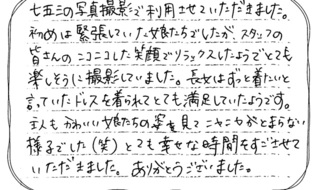 七五三の写真撮影で利用させていただきました。
初めは緊張していた娘たちでしたが、スタッフの
皆さんのニコニコした笑顔でリラックスしたようでとても
楽しそうに撮影していました。長女はずっと着たいと
言っていたドレスを着られてとても満足していたようです。
主人もかわいい娘たちの姿を見てニヤニヤがとまらない
様子でした(笑)とても幸せな時間をすごさせて
いただきました。ありがとうございました。